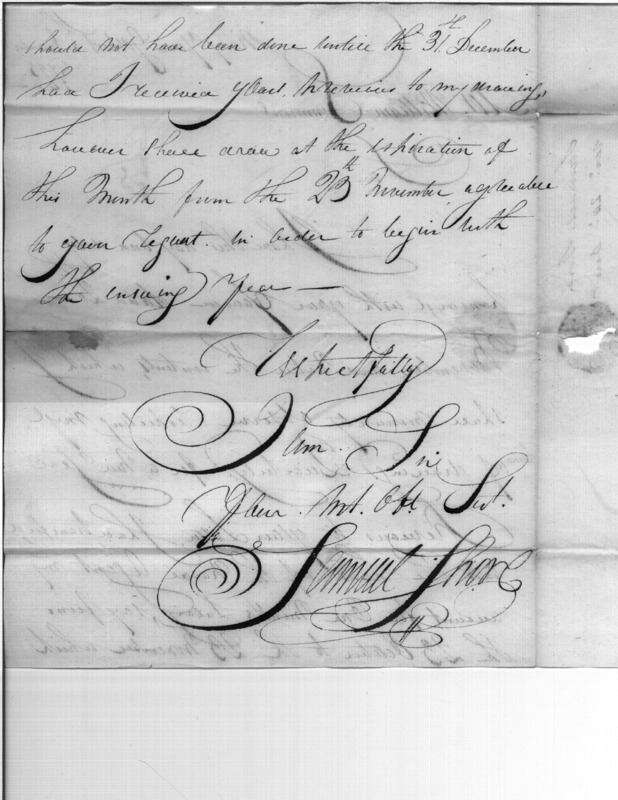 should not have been done untill the 31st December
had I received yours previous to my drawing,
however shall draw at the expiration of
this Month from the 23th November agreeable
to your request in order to begin with
the ensuing Year —
Respectfully
I am Sir
Your Mt. Obt. Sevt.
Samuel Shore